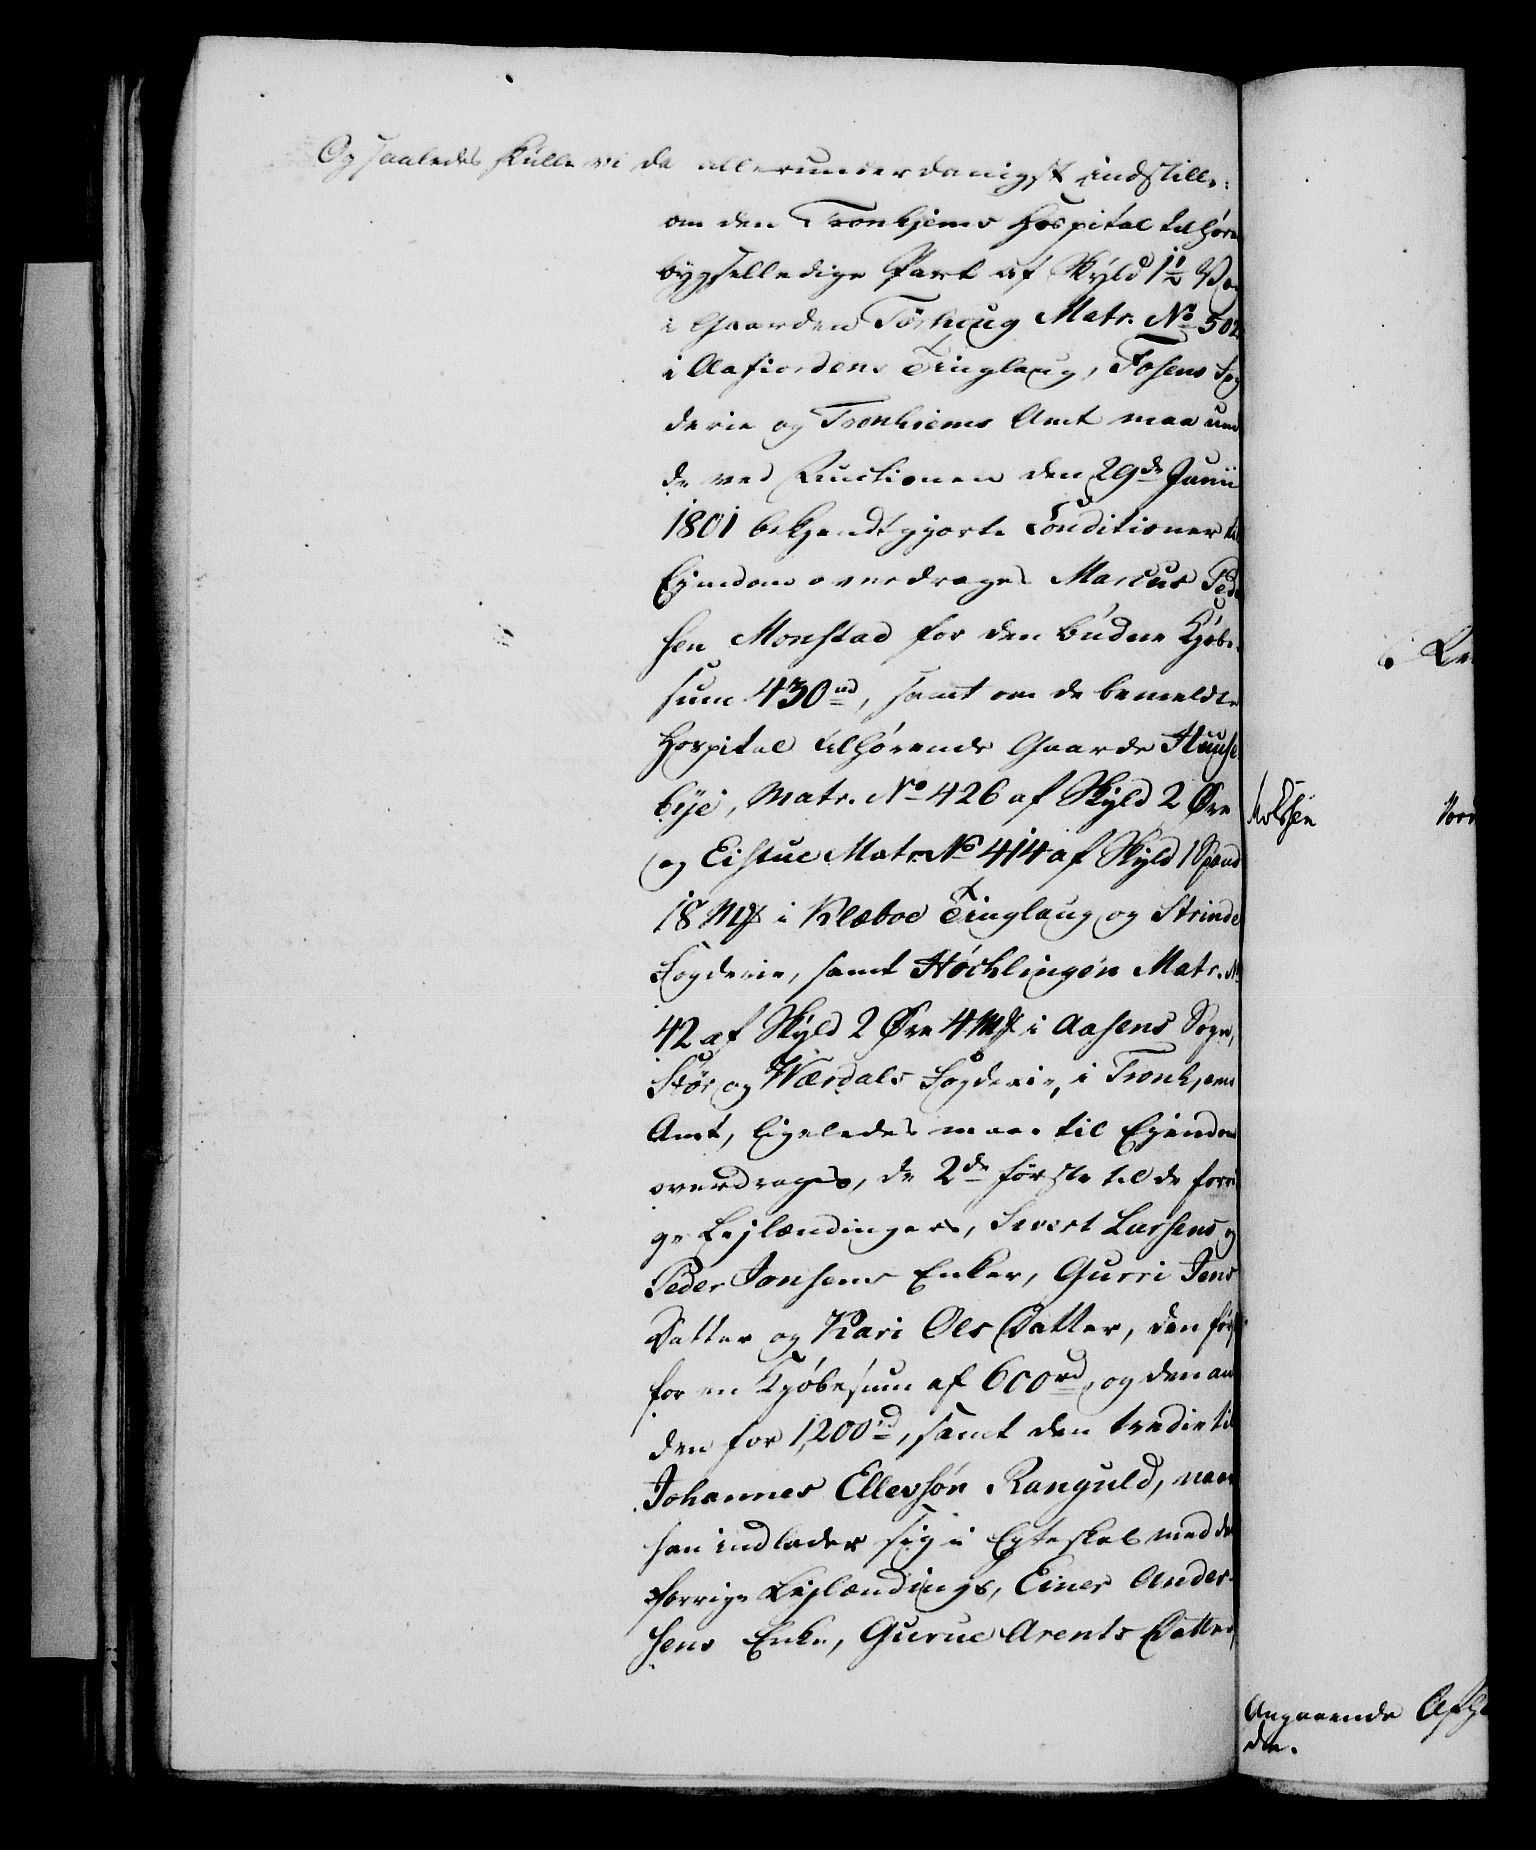 Og saaledes skulle vi da allerunderdanigst indstille:
om den Tronhjems Hospital tilhøre
bygselledige Part af Skyld 1½
i Gaarden Tørhoug Matr. No 502
i Aafiordens Tinglaug, Fosens Fog
derie og Tronhiems Amt maa un
de ved Auctionen den 29de Junii
1801 bekjendtgjorte Conditioner til
Ejendom overdrages Marcus Peder
sen Monstad for den budne Kjøbe-
sum 430 rd, samt om de bemeldte
Hospital tilhørende Gaarde Huuse
bye, Matr. No 426 af Skyld 2 Øre
og Eistue Matr. No 414 af Skyld 1 Spand
18 Mk i Klæboe Tinglaug og Strinde
Fogderie, samt Høchlingen Matr. No
42 af Skyld 2 Øre 4 Mk i Aasens Sogn,
Stør og Værdals Fogderie, i Tronhjems
Amt, ligeledes maae til Ejendom
overdrages, de 2de første til de forri
ge Lejlændingers, Sivert Larsens og
Peder Jonsens Enker, Gurri Jens
Datter og Kari Ols Datter, den første
for en Kjøbesum af 600 rd, og den an
den for 1,200 rd, samt den tredie til
Johannes Ellevsøn Ranguld, naar
han indlader sig i Egteskab med den
forrige Lejlændings, Einer Ander-
sens Enke, Gurue Arents Datter,
Angaaende